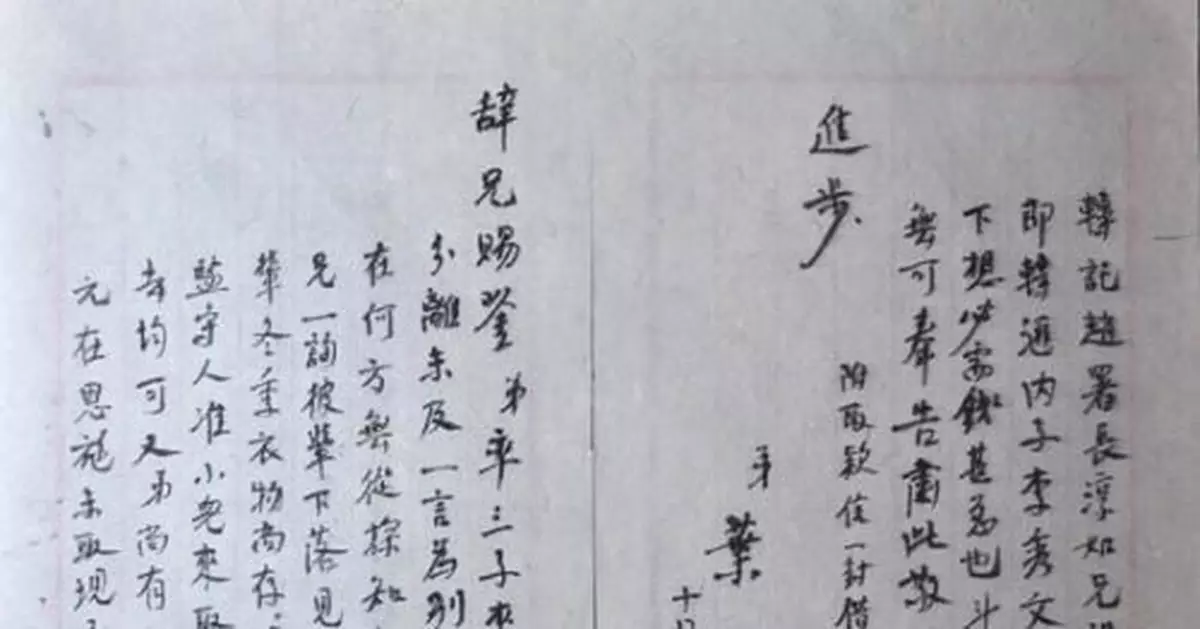 轉託趙署長淳如兄設
即轉通内子李秀文
下想必需錢甚急也斗
無可奉告肅此敬
進步
附取款信一封借
弟
葉
十
辞兄賜鉴 弟率三子來
分離未及一言為别
在何方無從探知
兄一詢彼輩下落見
輩冬季衣物尚存
監守人准小兒來取
去均可又弟尚有
元在恩施未取現